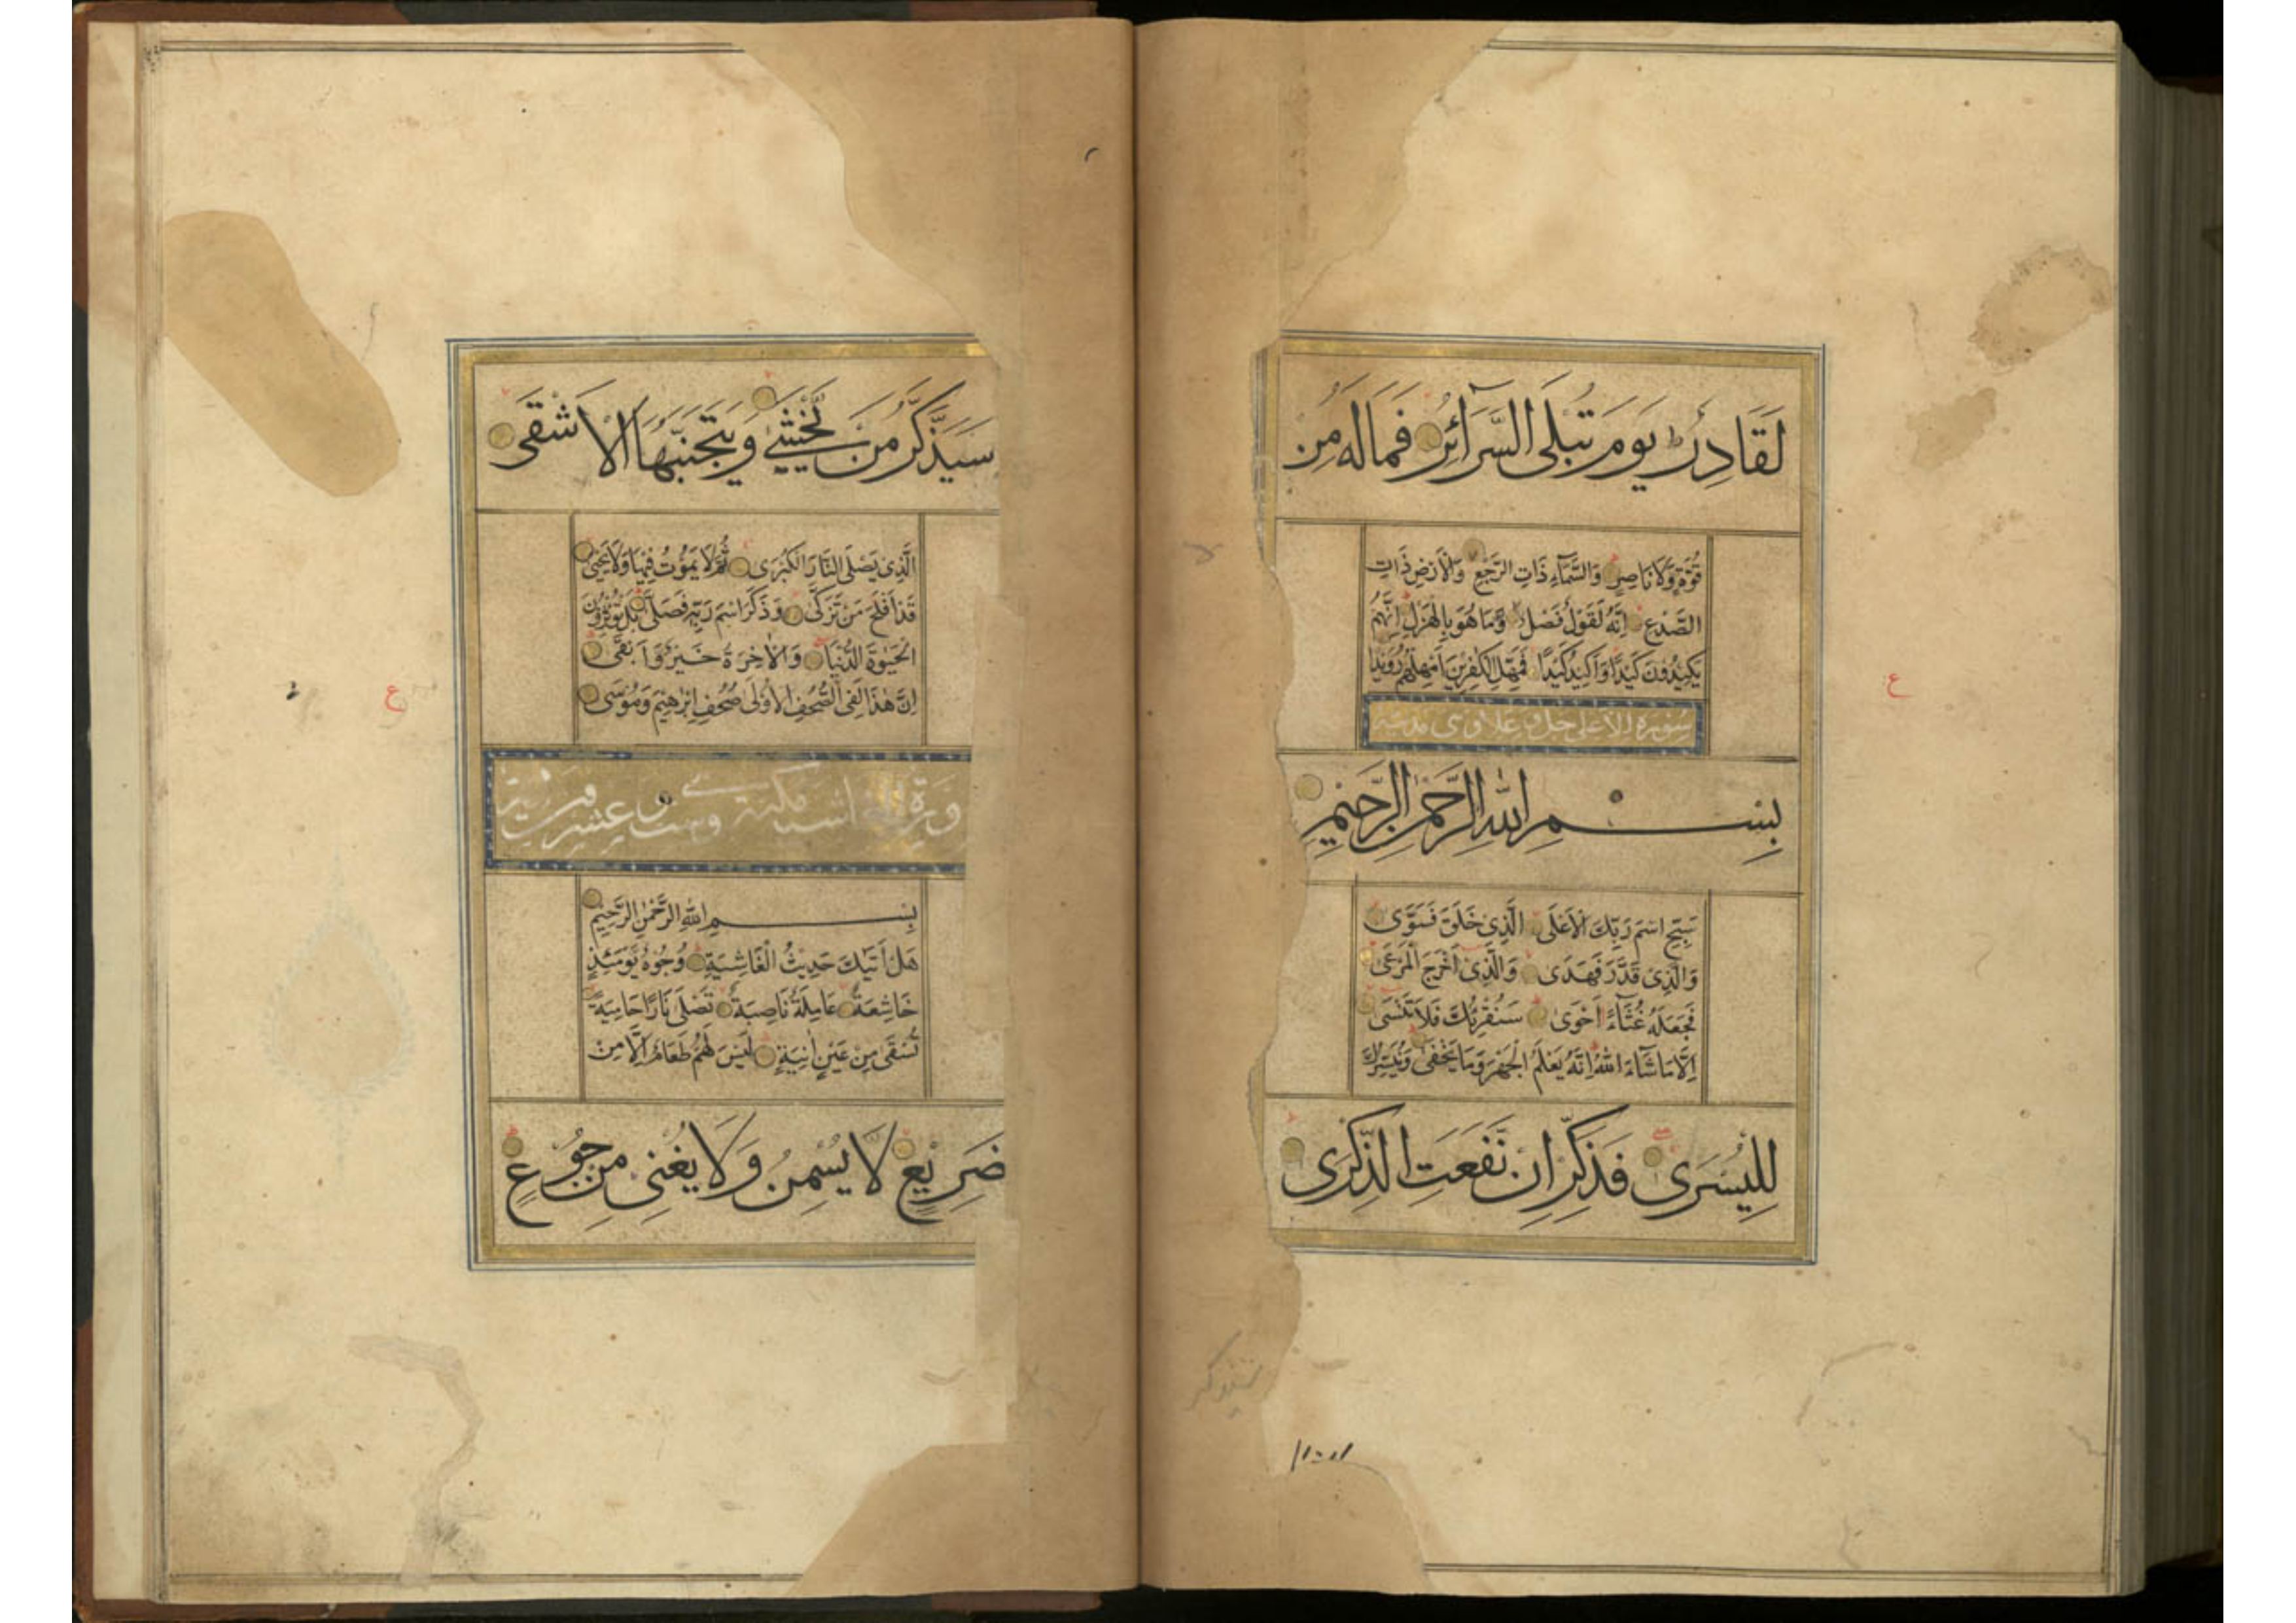 لَقَادِرٌ ط يَوْمَ تُبْلَى السَّرَآئِرُ فَمَا لَهُ مِنْ
قُوَّةٍ وَلَا نَاصِرٍ وَالسَّمَآءِ ذَاتِ الرَّجْعِ وَالْأَرْضِ ذَاتِ
الصَّدْعِ اِنَّهُ لَقَوْلٌ فَصْلٌ وَمَا هُوَ بِالْهَزْلِ اِنَّهُمْ
يَكِيْدُوْنَ كَيْدًا وَاَكِيْدُ كَيْدًا فَمَهِّلِ الْكٰفِرِيْنَ اَمْهِلْهُمْ رُوَيْدًا
سورة الاعلى جل وعلا وهى مدنية
بِسْمِ اللّٰهِ الرَّحْمٰنِ الرَّحِيْمِ
سَبِّحِ اسْمَ رَبِّكَ الْاَعْلَى الَّذِىْ خَلَقَ فَسَوّٰى
وَالَّذِىْ قَدَّرَ فَهَدٰى وَالَّذِىْ اَخْرَجَ الْمَرْعٰى
فَجَعَلَهُ غُثَآءً اَحْوٰى سَنُقْرِئُكَ فَلَا تَنْسٰى
اِلَّا مَا شَآءَ اللّٰهُ اِنَّهُ يَعْلَمُ الْجَهْرَ وَمَا يَخْفٰى وَنُيَسِّرُكَ
لِلْيُسْرٰى فَذَكِّرْ اِنْ نَفَعَتِ الذِّكْرٰى
ع
سَيَذَّكَّرُ مَنْ يَخْشٰى وَيَتَجَنَّبُهَا الْاَشْقَى
الَّذِىْ يَصْلَى النَّارَ الْكُبْرٰى ثُمَّ لَا يَمُوْتُ فِيْهَا وَلَا يَحْيٰى
قَدْ اَفْلَحَ مَنْ تَزَكّٰى وَذَكَرَ اسْمَ رَبِّهِ فَصَلّٰى بَلْ تُؤْثِرُوْنَ
الْحَيٰوةَ الدُّنْيَا وَالْاٰخِرَةُ خَيْرٌ وَاَبْقٰى
اِنَّ هٰذَا لَفِى الصُّحُفِ الْاُوْلٰى صُحُفِ اِبْرٰهِيْمَ وَمُوْسٰى
بِسْمِ اللّٰهِ الرَّحْمٰنِ الرَّحِيْمِ
هَلْ اَتٰيكَ حَدِيْثُ الْغَاشِيَةِ وُجُوْهٌ يَوْمَئِذٍ
خَاشِعَةٌ عَامِلَةٌ نَاصِبَةٌ تَصْلٰى نَارًا حَامِيَةً
تُسْقٰى مِنْ عَيْنٍ اٰنِيَةٍ لَيْسَ لَهُمْ طَعَامٌ اِلَّا مِنْ
ضَرِيْعٍ لَا يُسْمِنُ وَلَا يُغْنِىْ مِنْ جُوْعٍ
ع